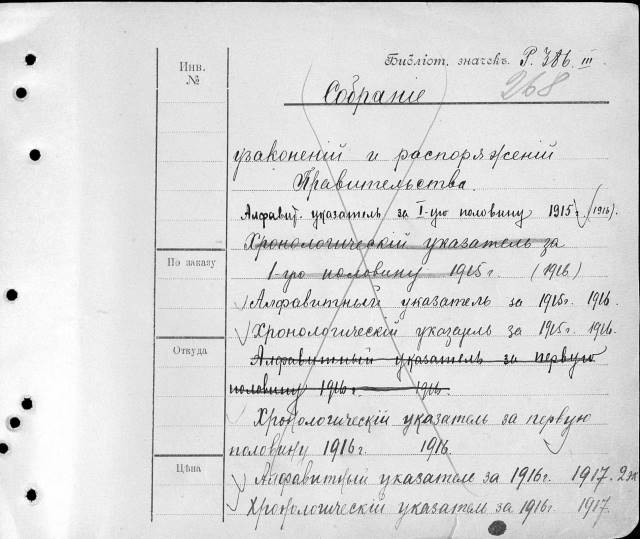 Инв. №
Библіот. значекъ. Р. 386. III
268
Собраніе
узаконеній и распоряженій
Правительства.
Алфавит. указатель за I-ую половину 1915 г. (1916).
Хронологическій указатель за
1-ую половину 1915 г. (1916)
По заказу
Алфавитный указатель за 1915 г. 1916.
Хронологическій указатель за 1915 г. 1916.
Откуда
Алфавитный указатель за первую
половину 1916 г. 1916.
Хронологическій указатель за первую
половину 1916 г. 1916.
Цѣна
Алфавитный указатель за 1916 г. 1917. 2 эк
Хронологическій указатель за 1916 г. 1917.